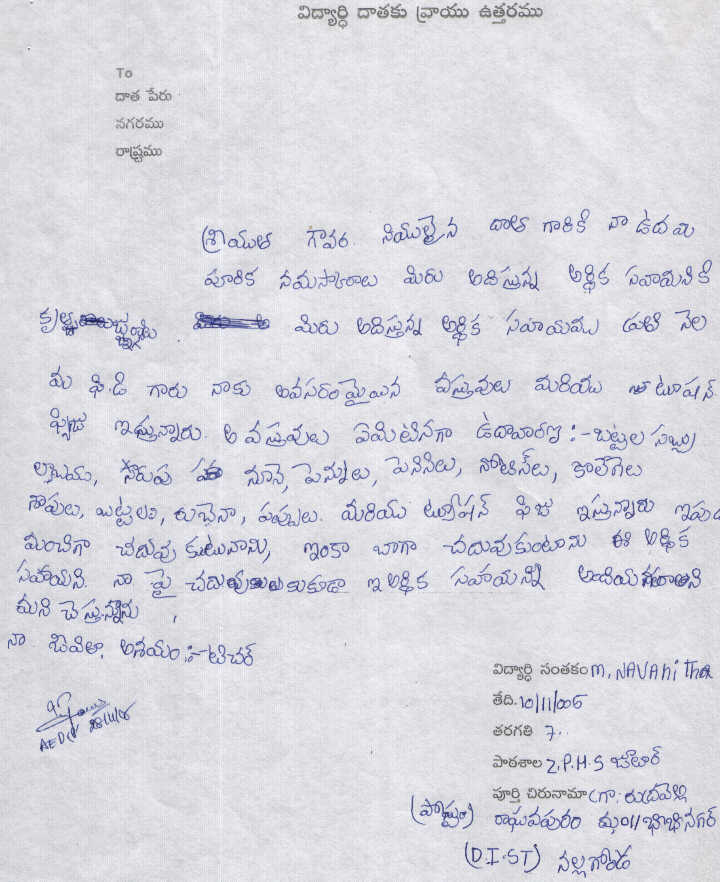 విద్యార్ధి దాతకు వ్రాయు ఉత్తరము
To
దాత పేరు
నగరము
రాష్ట్రము
శ్రీయుత గౌవర నియులైన దాతా గారికి నా ఉదయ
పూరిక నమస్కారాలు మిరు అదిస్తున్న అర్థిక సహాయనికి
మిరు అదిస్తున్న అర్థిక సహాయము ప్రతి నెల
మ ఫి.డి గారు నాకు అవసరంమైయిన వస్తువులు మరియు టూషన్
ఫ్పిజు ఇస్తున్నారు. ఆ వస్తువులు ఏమిటినగా ఉదాహారణ :- బట్టల సబ్బు
నూనె, పెన్నులు, పెనిసిలు, నోటీస్‌లు, కాలేగెలు
సోపులు, బట్టలు, పప్పులు. మరియు టూషన్ ఫిజు ఇస్తున్నారు ఇపుడ
మంచిగా చదువు కుటునాను, ఇంకా బాగా చదువుకుంటూను ఈ అర్థిక
సహయని. నా పై చదువులకుకూడా ఇ అర్థిక సహాయన్ని
మని చెస్తున్నాను
నా జివితా. అశయం :- టిచర్
విద్యార్ధి సంతకం M. NAVANitha
తేది. 10/11/006
తరగతి 7.
పాఠశాల Z.P.H.S జూటూర్
పూర్తి చిరునామా (గా: రుద్రవెల్లి
(పోస్టు) రాఘవపురం మం//భూభినగర్
(D.I.ST) నల్లగొండ
AEDCX 28/11/06